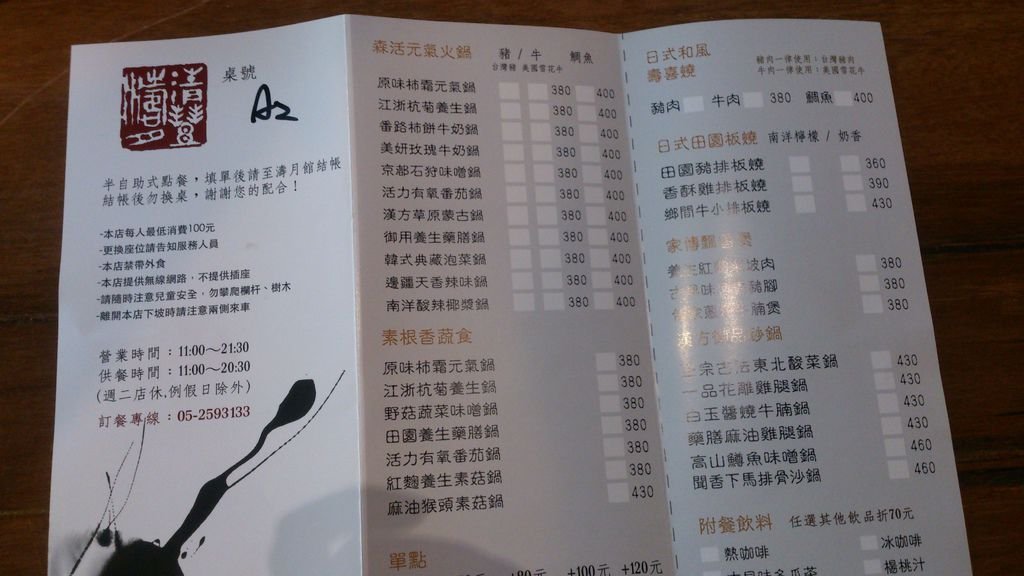 桌號
A2
半自助式點餐，填單後請至濤月館結帳
結帳後勿換桌，謝謝您的配合！
-本店每人最低消費100元
-更換座位請告知服務人員
-本店禁帶外食
-本店提供無線網路，不提供插座
-請隨時注意兒童安全，勿攀爬欄杆、樹木
-離開本店下坡時請注意兩側來車
營業時間：11:00～21:30
供餐時間：11:00～20:30
(週二店休,例假日除外)
訂餐專線：05-2593133
森活元氣火鍋 豬 / 牛 鯛魚
台灣豬 美國雪花牛
原味柿霜元氣鍋 380 400
江浙杭菊養生鍋 380 400
番路柿餅牛奶鍋 380 400
美妍玫瑰牛奶鍋 380 400
京都石狩味噌鍋 380 400
活力有氧番茄鍋 380 400
漢方草原蒙古鍋 380 400
御用養生藥膳鍋 380 400
韓式典藏泡菜鍋 380 400
邊疆天香辣味鍋 380 400
南洋酸辣椰漿鍋 380 400
素根香蔬食
原味柿霜元氣鍋 380
江浙杭菊養生鍋 380
野菇蔬菜味噌鍋 380
田園養生藥膳鍋 380
活力有氧番茄鍋 380
紅麴養生素菇鍋 380
麻油猴頭素菇鍋 430
單點
+80元 +100元 +120元
日式和風
壽喜燒
豬肉一律使用：台灣豬肉
牛肉一律使用：美國雪花牛
豬肉 牛肉 380 鯛魚 400
日式田園板燒 南洋檸檬 / 奶香
田園豬排板燒 360
香酥雞排板燒 390
鄉間牛小排板燒 430
家傳飄香煲
養生紅 坡肉 380
古 味 豬腳 380
腩煲 380
漢方 砂鍋
宗古法東北酸菜鍋 430
一品花雕雞腿鍋 430
白玉醬燒牛腩鍋 430
藥膳麻油雞腿鍋 430
高山鱒魚味噌鍋 460
聞香下馬排骨沙鍋 460
附餐飲料 任選其他飲品折70元
熱咖啡 冰咖啡
楊桃汁